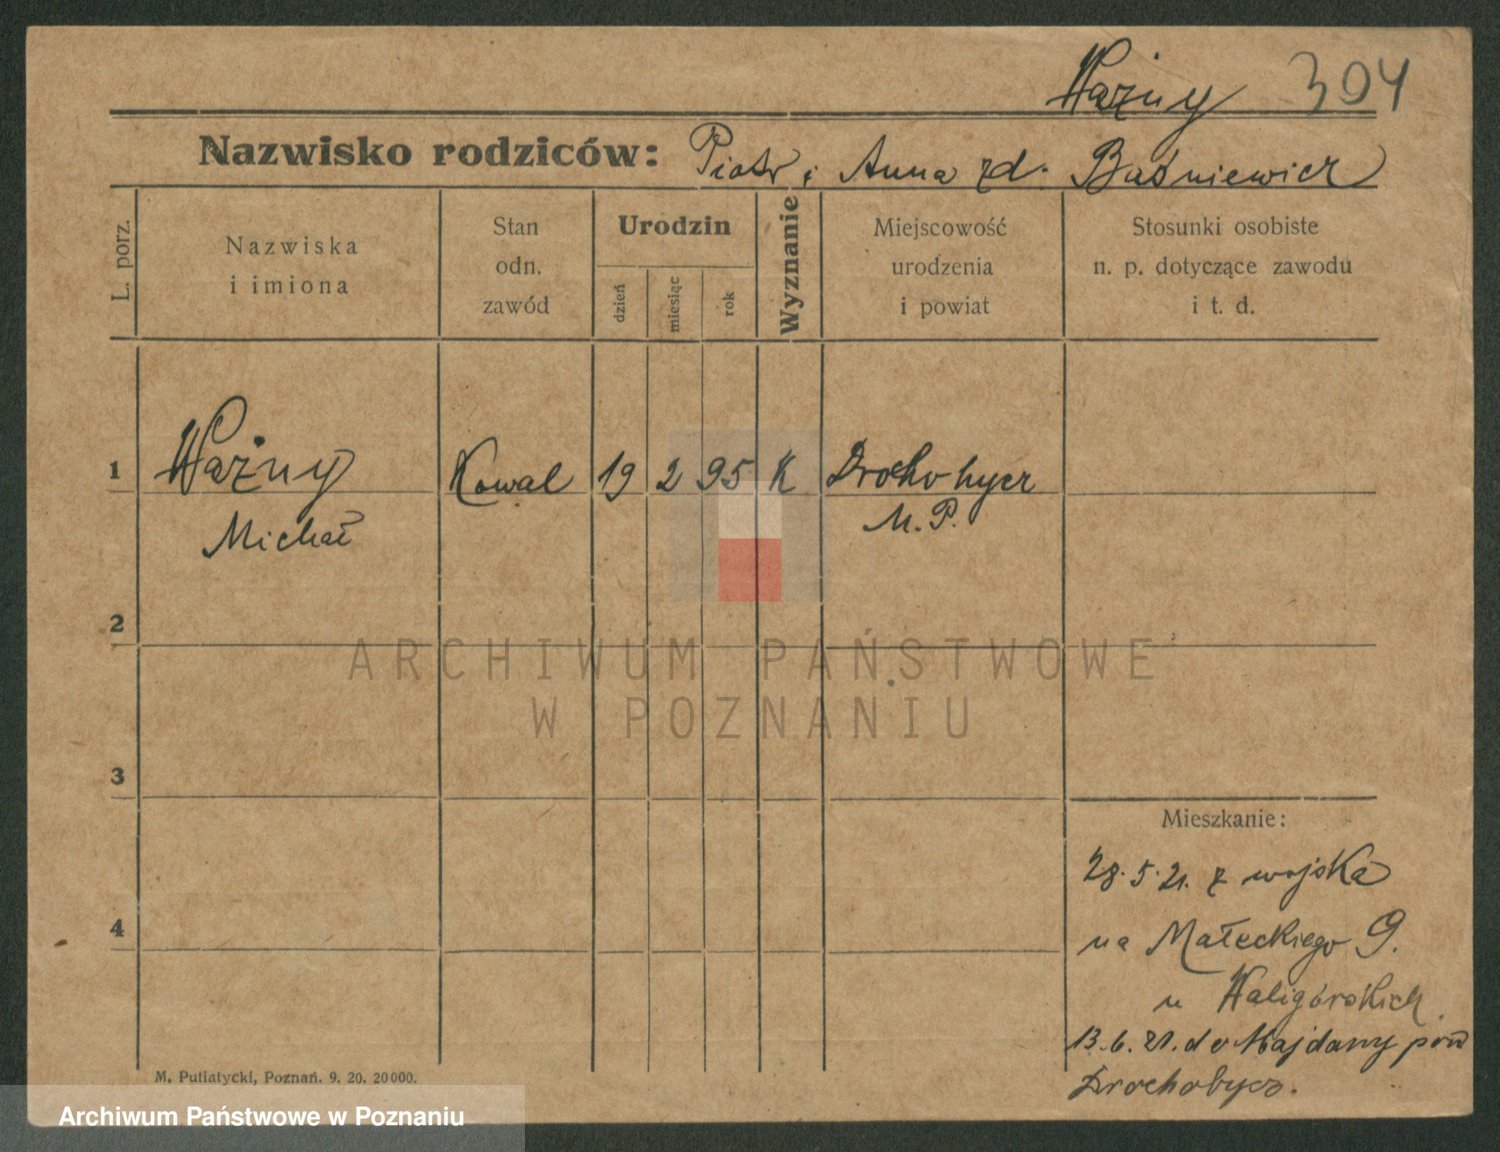 Ważny 304
Nazwisko rodziców: Piotr i Anna zd. Baśniewicz
L. porz.
Nazwiska
i imiona
Stan
odn.
zawód
Urodzin
dzień
miesiąc
rok
Wyznanie
Miejscowość
urodzenia
i powiat
Stosunki osobiste
n. p. dotyczące zawodu
i t. d.
1 Ważny Kowal 19 2 95 K Drohobycz
Michał M. P.
2
3
4
ARCHIWUM PAŃSTWOWE
W POZNANIU
Mieszkanie:
28.5.21. z wojska
na Małeckiego 9.
u Waligórskich.
13.6.21. do Majdany pow
Drochobycz.
M. Putiatycki, Poznań. 9. 20. 20000.
Archiwum Państwowe w Poznaniu